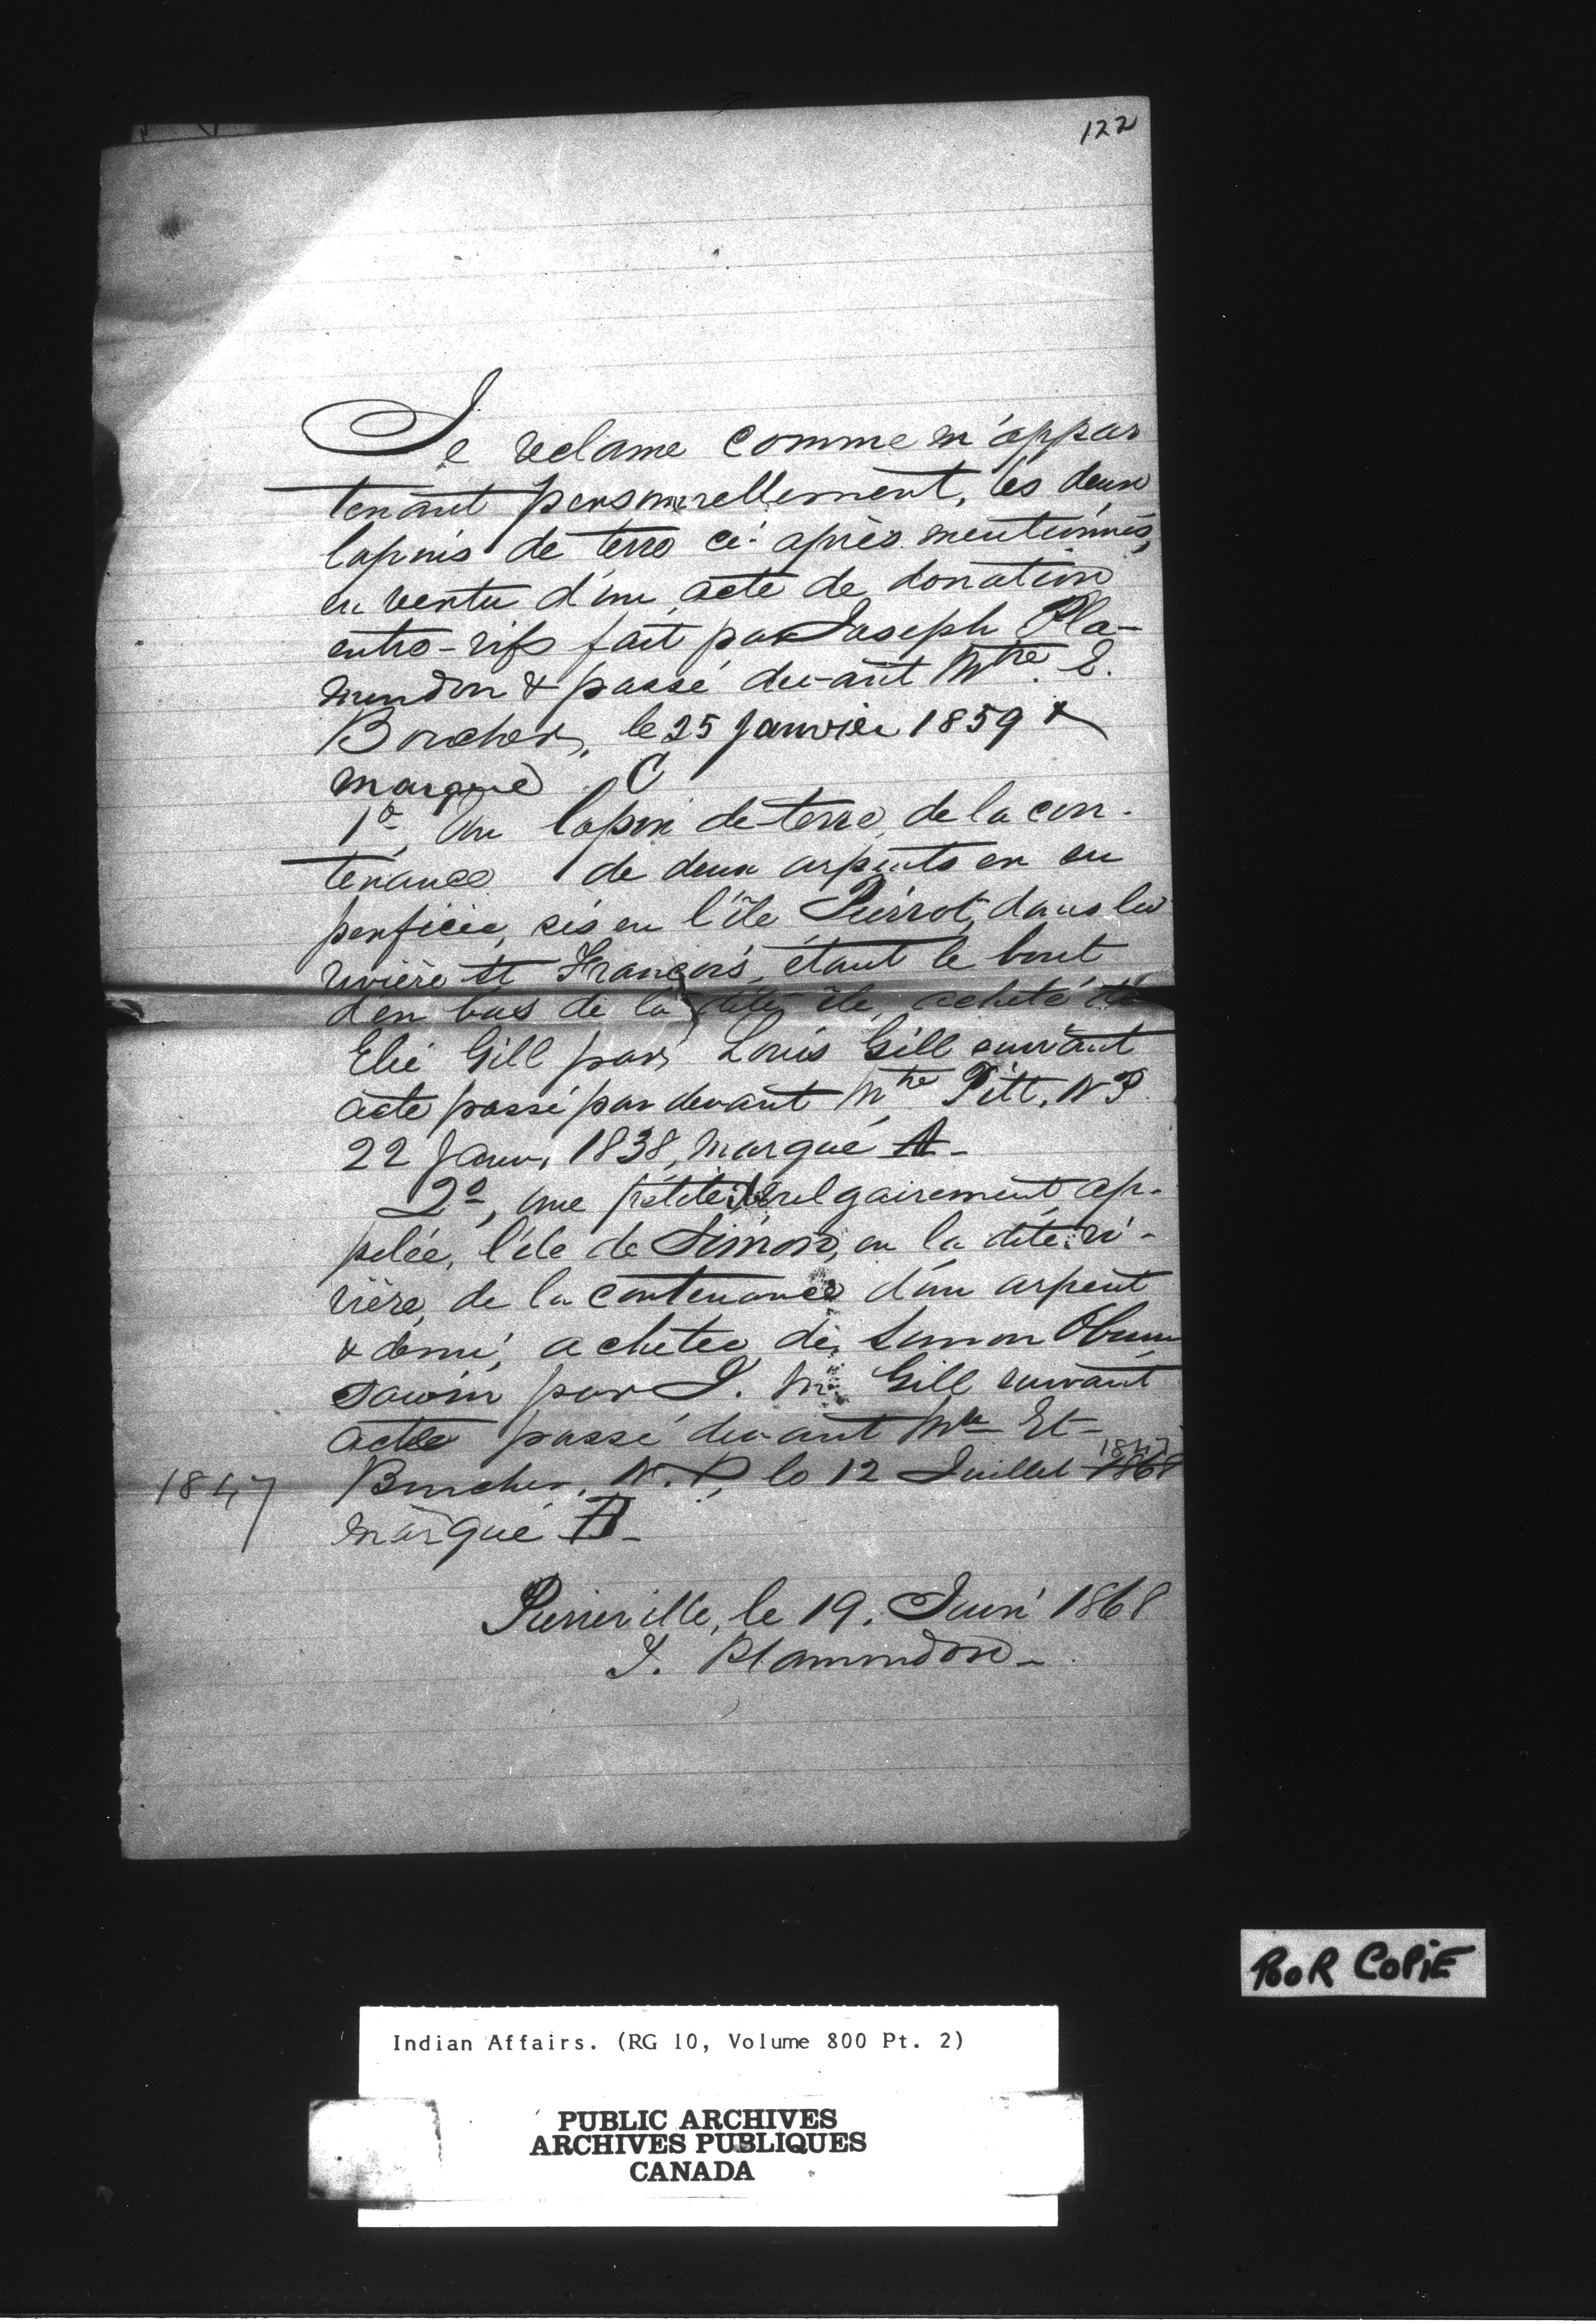 122
Je reclame comme m'appar
tenant personnellement, les deux
lopins de terre ci-après mentionnés,
en vertu d'un acte de donation
entre-vifs fait par Joseph Pla-
mondon & passé devant Mtre. E.
Boucher, le 25 Janvier 1859 &
marqué C
1o, Un lopin de terre, de la con-
tenance de deux arpents en su
perficie, sis en l'île Pierrot, dans la
rivière St François, étant le bout
d'en bas de la dite île, acheté de
Elie Gill par Louis Gill suivant
acte passé par devant Mtre Pitt, N.P.
22 Janv, 1838, marqué A-
2o, une petite île vulgairement ap-
pelée, l'île de Simon, en la dite ri-
vière, de la contenance d'un arpent
& demi, achetée de Simon Obum
sawin par I. M. Gill suivant
acte passé devant Mtre Et-
1847
1847 Boucher, N.P, le 12 Juillet 1868
marqué B-
Pierreville, le 19. Juin 1868
J. Plamondon-
POOR COPIE
Indian Affairs. (RG 10, Volume 800 Pt. 2)
PUBLIC ARCHIVES
ARCHIVES PUBLIQUES
CANADA